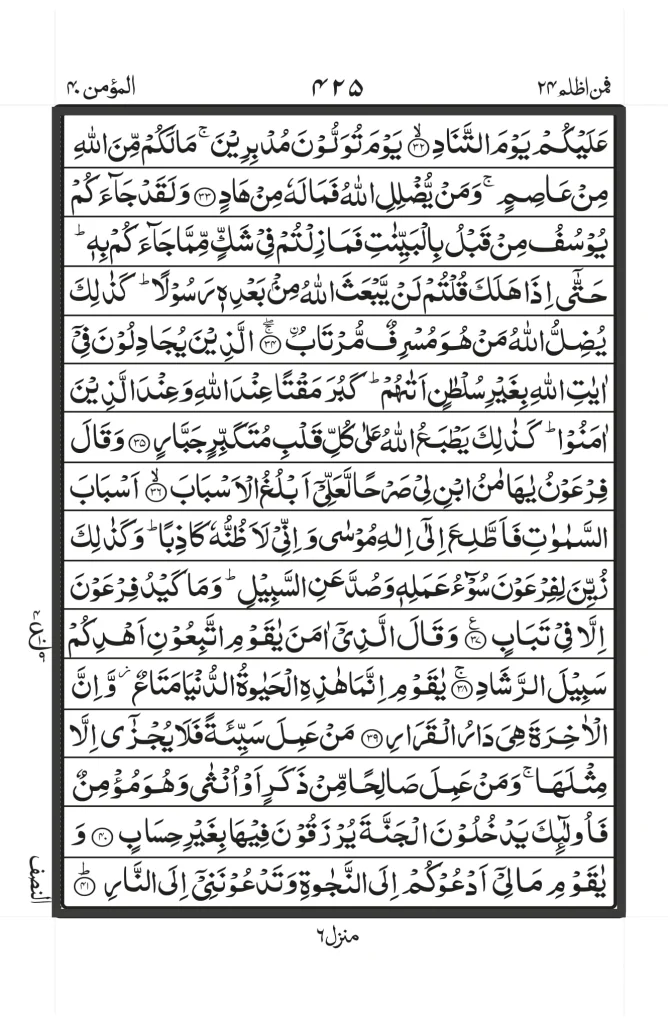 فمن اظلم ٢٤
٤٢٥
المؤمن ٤٠
عَلَيۡكُمۡ يَوۡمَ التَّنَادِ ۙ‏﴿۳۲﴾ يَوۡمَ تُوَلُّوۡنَ مُدۡبِرِيۡنَ ۚ مَا لَكُمۡ مِّنَ اللّٰهِ
مِنۡ عَاصِمٍ ۚ وَمَنۡ يُّضۡلِلِ اللّٰهُ فَمَا لَهٗ مِنۡ هَادٍ ﴿۳۳﴾ وَلَقَدۡ جَآءَكُمۡ
يُوۡسُفُ مِنۡ قَبۡلُ بِالۡبَيِّنٰتِ فَمَا زِلۡتُمۡ فِىۡ شَكٍّ مِّمَّا جَآءَكُمۡ بِهٖ ؕ
حَتّٰٓى اِذَا هَلَكَ قُلۡتُمۡ لَنۡ يَّبۡعَثَ اللّٰهُ مِنۡۢ بَعۡدِهٖ رَسُوۡلًا ؕ كَذٰلِكَ
يُضِلُّ اللّٰهُ مَنۡ هُوَ مُسۡرِفٌ مُّرۡتَابُ ۨ ۚۖ ﴿۳۴﴾ الَّذِيۡنَ يُجَادِلُوۡنَ فِىۡۤ
اٰيٰتِ اللّٰهِ بِغَيۡرِ سُلۡطٰنٍ اَتٰٮهُمۡ ؕ كَبُرَ مَقۡتًا عِنۡدَ اللّٰهِ وَعِنۡدَ الَّذِيۡنَ
اٰمَنُوۡا ؕ كَذٰلِكَ يَطۡبَعُ اللّٰهُ عَلٰى كُلِّ قَلۡبِ مُتَكَبِّرٍ جَبَّارٍ ﴿۳۵﴾ وَقَالَ
فِرۡعَوۡنُ يٰهَامٰنُ ابۡنِ لِىۡ صَرۡحًا لَّعَلِّىۡۤ اَبۡلُغُ الۡاَسۡبَابَ ۙ﴿۳۶﴾ اَسۡبَابَ
السَّمٰوٰتِ فَاَطَّلِعَ اِلٰٓى اِلٰهِ مُوۡسٰى وَاِنِّىۡ لَاَظُنُّهٗ كَاذِبًا ؕ وَكَذٰلِكَ
زُيِّنَ لِفِرۡعَوۡنَ سُوۡٓءُ عَمَلِهٖ وَصُدَّ عَنِ السَّبِيۡلِ ؕ وَمَا كَيۡدُ فِرۡعَوۡنَ
اِلَّا فِىۡ تَبَابٍ ﴿۳۷﴾ ع وَقَالَ الَّذِىۡۤ اٰمَنَ يٰقَوۡمِ اتَّبِعُوۡنِ اَهۡدِكُمۡ
سَبِيۡلَ الرَّشَادِ ۚ﴿۳۸﴾ يٰقَوۡمِ اِنَّمَا هٰذِهِ الۡحَيٰوةُ الدُّنۡيَا مَتَاعٌ وَّاِنَّ
الۡاٰخِرَةَ هِىَ دَارُ الۡقَرَارِ ﴿۳۹﴾ مَنۡ عَمِلَ سَيِّئَةً فَلَا يُجۡزٰٓى اِلَّا
مِثۡلَهَا ۚ وَمَنۡ عَمِلَ صَالِحًا مِّنۡ ذَكَرٍ اَوۡ اُنۡثٰى وَهُوَ مُؤۡمِنٌ
فَاُولٰٓئِكَ يَدۡخُلُوۡنَ الۡجَنَّةَ يُرۡزَقُوۡنَ فِيۡهَا بِغَيۡرِ حِسَابٍ ﴿۴۰﴾ وَ
يٰقَوۡمِ مَا لِىۡۤ اَدۡعُوۡكُمۡ اِلَى النَّجٰوةِ وَتَدۡعُوۡنَنِىۡۤ اِلَى النَّارِ ؕ﴿۴۱﴾
النصف
منزل ٦